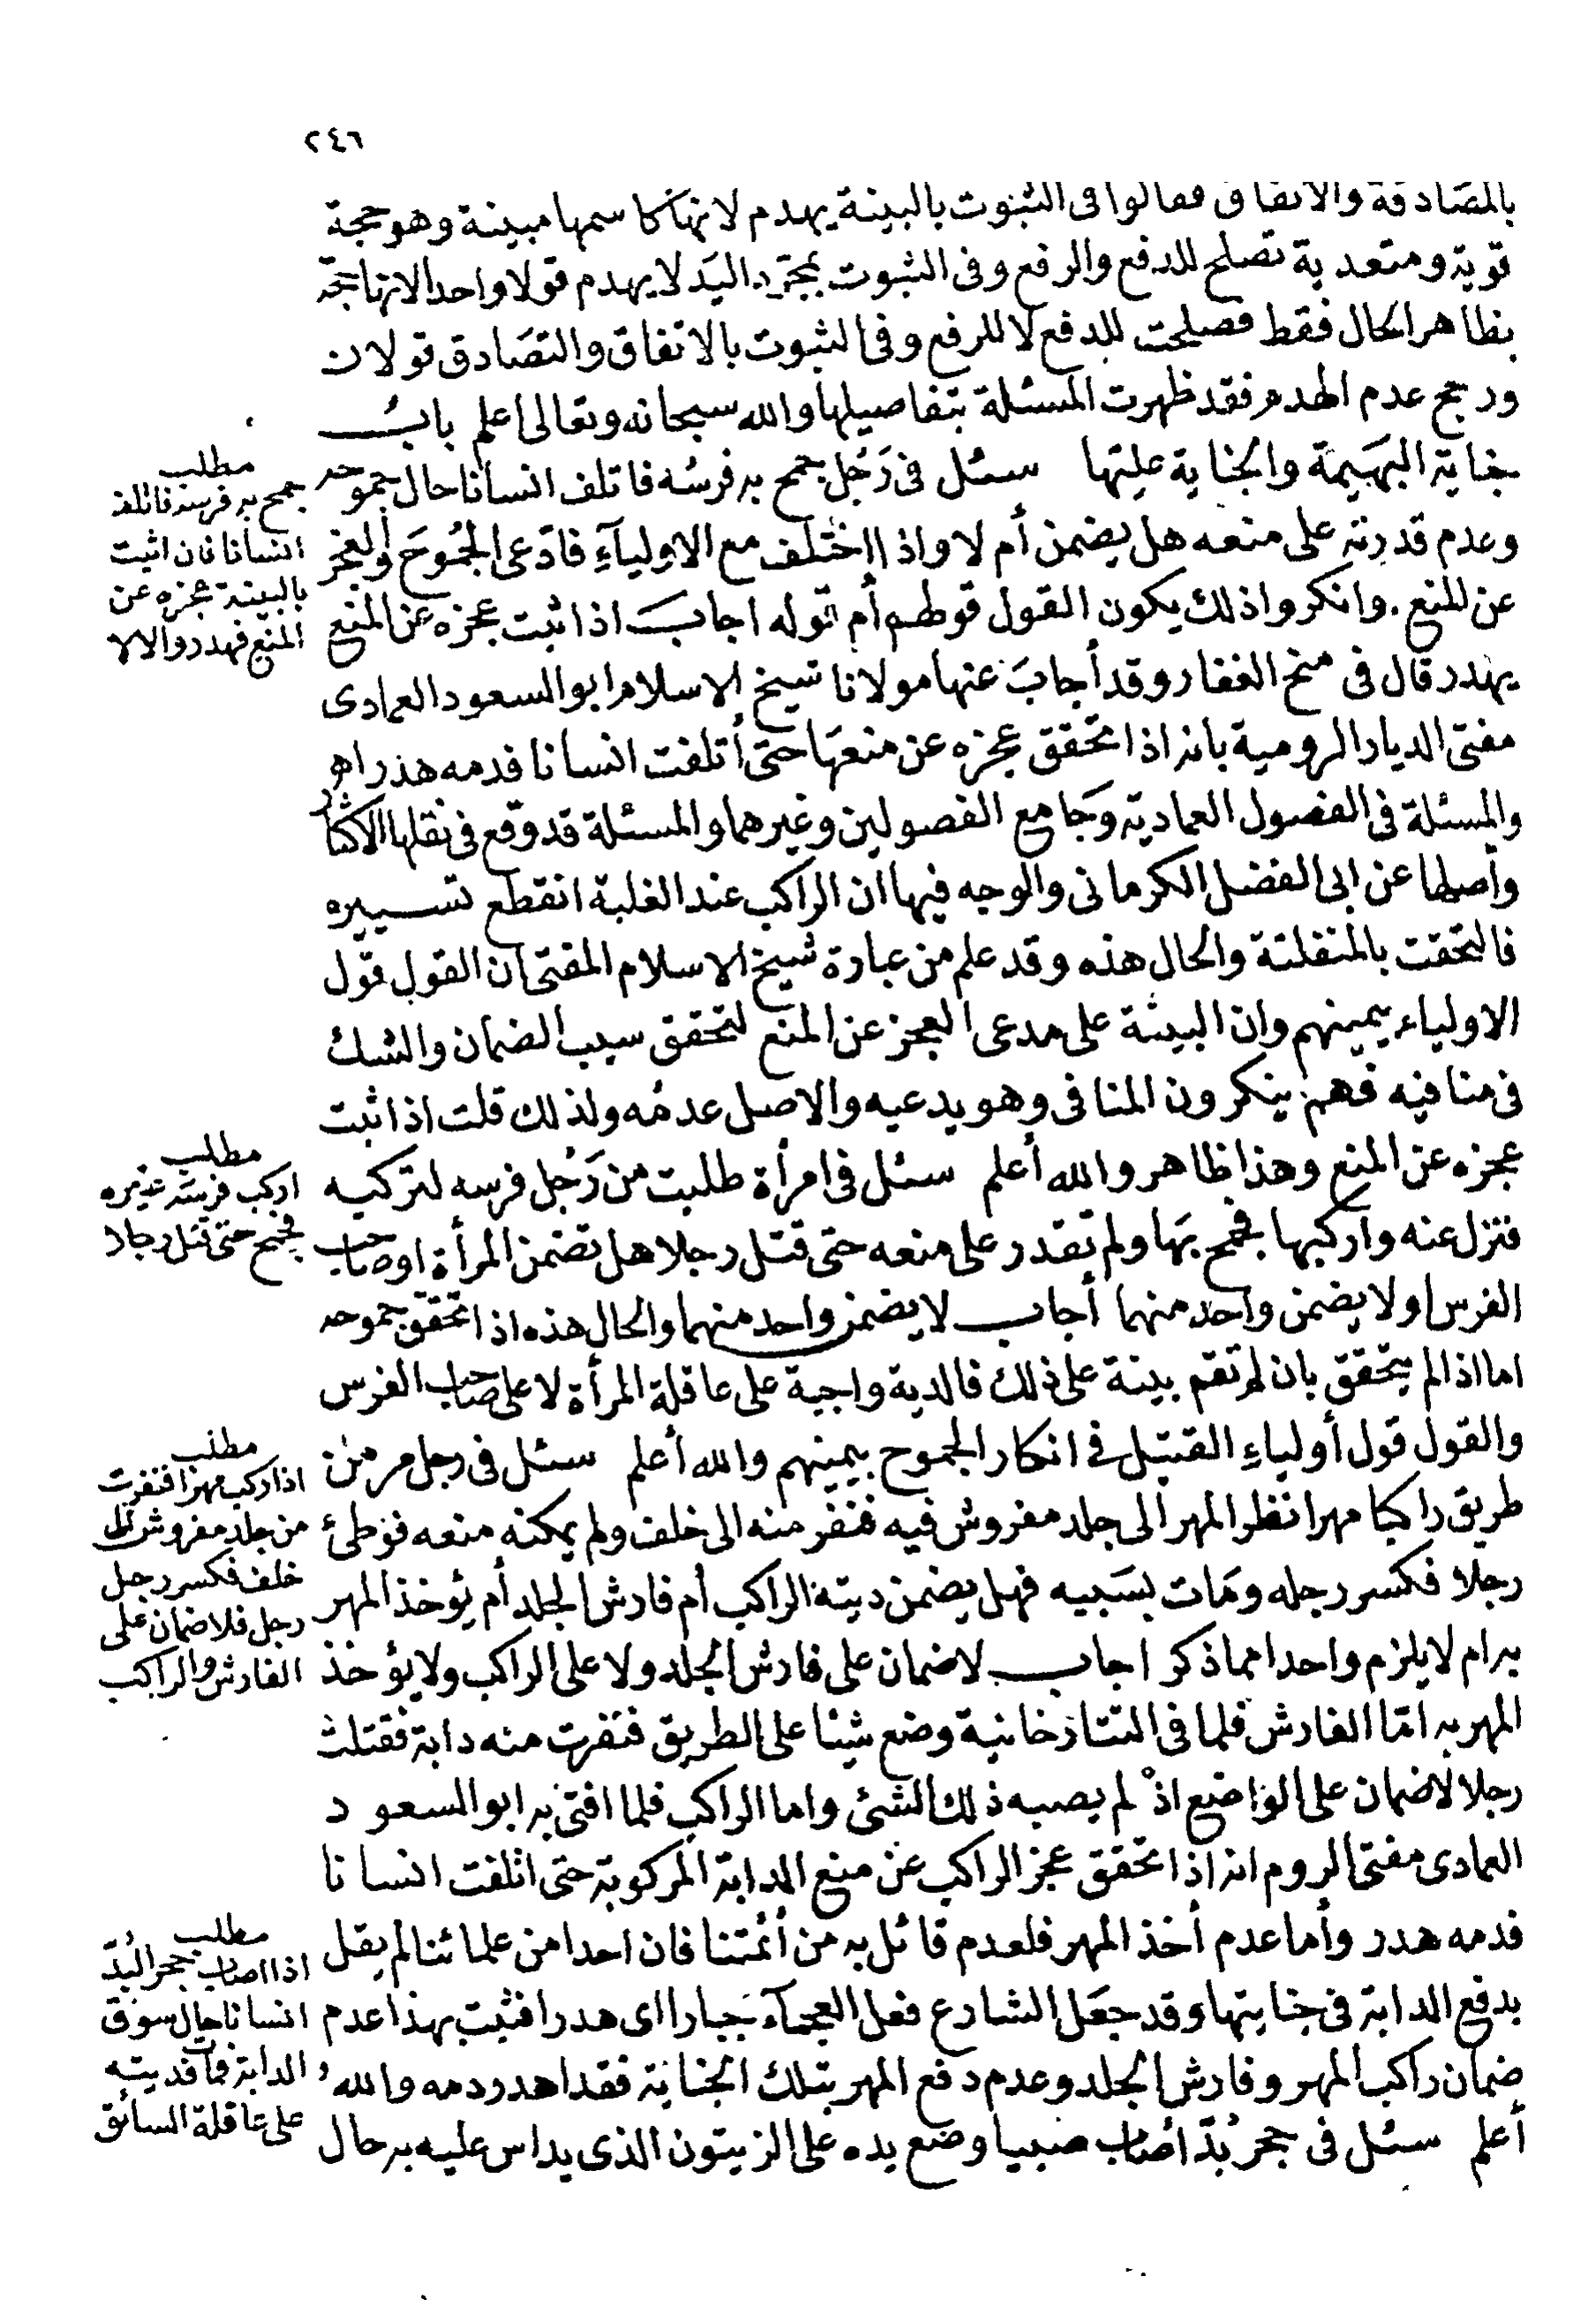 ٢٤٦
بالمصادقة والاتفاق فقالوا فى الثبوت بالبينة يهدم لانها كاسمها مبينة وهو حجة
قوية ومتعدية تصلح للدفع والرفع وفى الثبوت بمجرد اليد لا يهدم قولا واحدا لانها حجة
بظاهر الحال فقط فصلحت للدفع لا للرفع وفى الثبوت بالاتفاق والتصادق قولان
ورجح عدم الهدم فقد ظهرت المسئلة بتفاصيلها والله سبحانه وتعالى اعلم باب
جناية البهيمة والجناية عليها سئل فى رَجُل جمح به فرسُه فاتلف انسانا حال جموحه
وعدم قدرته على منعه هل يضمن أم لا واذا اختلف مع الاولياءِ فادّعى الجُموحَ والعجز
عن المنع وانكروا ذلك يكون القول قولهم أم قوله اجابَ اذا ثبت عجزه عن المنع
يهدر قال فى منح الغفار وقد أجابَ عنها مولانا شيخ الاسلام ابو السعود العمادى
مفتى الديار الرومية بانه اذا تحقق عجزه عن منعها حتى أتلفت انسانا فدمه هدر اهـ
والمسئلة فى الفصول العمادية وجَامع الفصولين وغيرهما والمسئلة قد وقع فى نقلها الاكثار
وأصلها عن ابى الفضل الكرمانى والوجه فيها ان الراكب عند الغلبة انقطع تسييره
فالتحقت بالمنفلتة والحال هذه وقد علم من عبارة شيخ الاسلام المفتى ان القول قول
الاولياء بيمينهم وان البينة على مدعى العجز عن المنع لتحقق سبب الضمان والشك
فى منافيه فهم ينكرون المنافى وهو يدعيه والاصل عدمُه ولذلك قلت اذا ثبت
عجزه عن المنع وهذا ظاهر والله أعلم سئل فى امرأة طلبت من رَجُل فرسه لتركبه
فنزل عنه واركبها فجمح بها ولم تقدر على منعه حتى قتل رجلا هل تضمن المرأة او صاحب
الفرس او لا يضمن واحد منهما أجاب لا يضمن واحد منهما والحال هذه اذا تحقق جموحه
اما اذا لم يتحقق بان لم تقم بينة على ذلك فالدية واجبة على عاقلة المرأة لا على صاحب الفرس
والقول قول أولياءِ القتيل فى انكار الجموح بيمينهم والله أعلم سئل فى رجل مر من
طريق راكبا مهرا فنظر المهر الى جلد مفروش فيه فنفر منه الى خلف ولم يمكنه منعه فوطئ
رجلا فكسر رجله ومَات بسَببه فهل يضمن ديته الراكب أم فارش الجلد أم يؤخذ المهر
به ام لا يلزم واحدا مما ذكر اجاب لا ضمان على فارش الجلد ولا على الراكب ولا يؤخذ
المهر به امّا الفارش فلما فى التتارخانية وضع شيئا على الطريق فنفرت منه دابة فقتلت
رجلا لاضمان على الواضع اذْ لم يصبه ذلك الشئ واما الراكب فلما افتى به ابو السعود
العمادى مفتى الروم انه اذا تحقق عجز الراكب عن منع الدابة المركوبة حتى اتلفت انسانا
فدمه هدر وأما عدم أخذ المهر فلعدم قائل به من أئمتنا فان احدا من علمائنا لم يقل
بدفع الدابة فى جنايتها وقد جعَل الشارع فعل العجماءَ جبارا اى هدرا فثبت بهذا عدم
ضمان راكب المهر وفارش الجلد وعدم دفع المهر بتلك الجناية فقد اهدر دمه واللهُ
أعلم سئل فى حجر بُدّ أصاب صبيا وضع يده على الزيتون الذى يداس عليه به حال
مطلب
جمح به فرسه فاتلف
انسانا فان اثبت
بالبينة عجزه عن
المنع فهدر والا لا
مطلب
اركب فرسَه غيره
فجمح حتى قتل رجلا
مطلب
اذا ركب مهرا فنفرت
من جلد مفروش الى
خلف فكسر رجل
رجل فلا ضمان على
الفارش والراكب
مطلب
اذا اصاب حجر البُدّ
انسانا حال سوق
الدابة فمات فديته
على عاقلة السائق